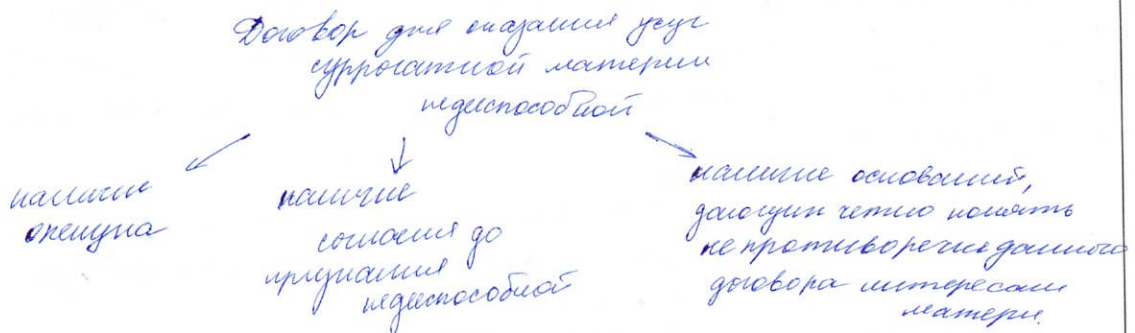 Договор для оказания услуг
суррогатной матери
недееспособной
наличие
опекуна
наличие
согласия до
признания
недееспособной
наличие оснований,
дающих четко понять
не противоречие данного
договора интересам
матери.